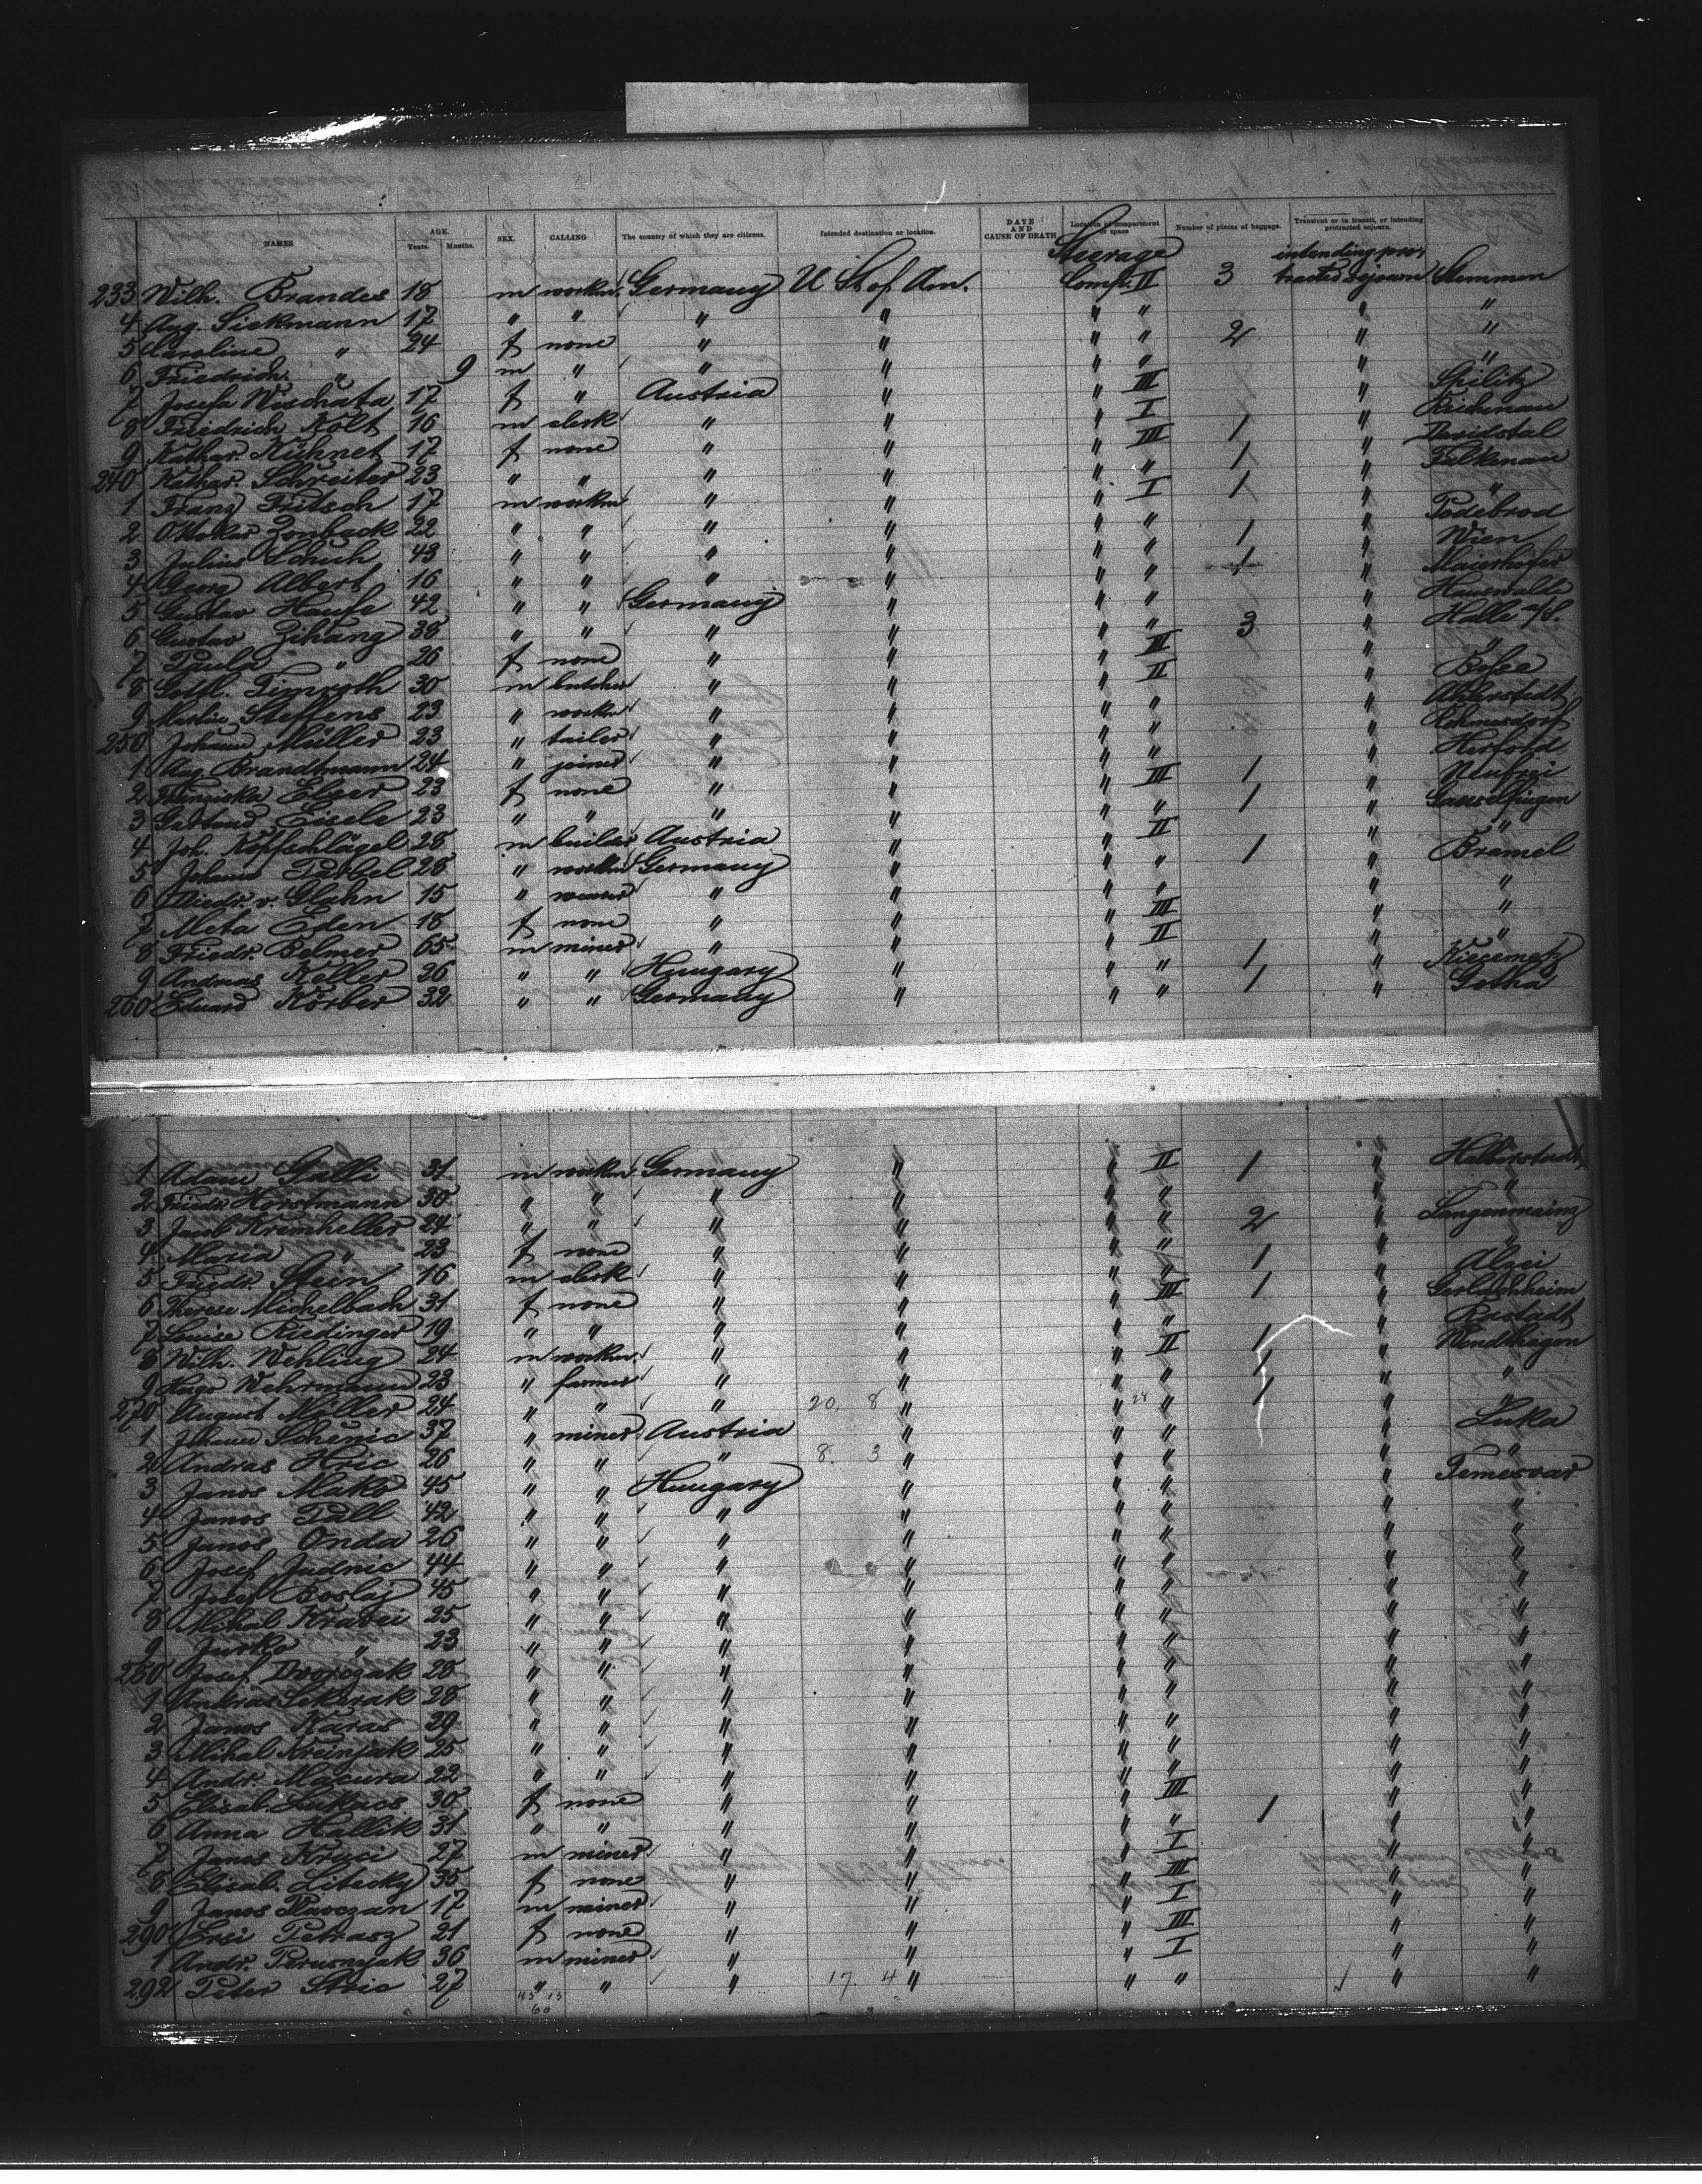 NAMES AGE. Years. Months. SEX. CALLING The country of which they are citizens. Intended destination or location. DATE AND CAUSE OF DEATH Location of compartment or space Number of pieces of baggage. Transient or in transit, or intending protracted sojourn.
Steerage intending pro-
233 Wilh. Brandes 18 m workm. Germany U St. of Am. Compt. II 3 tracted sojourn Stemmen
4 Aug. Siekmann 17 " " " " " " " "
5 Caroline " 24 f none " " " " 2 " "
6 Friedrich " 9 m " " " " " " "
7 Josefa Wischata 17 f " Austria " " III " Spilitz
8 Friedrich Kolt 16 m clerk " " " I " Reichenau
9 Kathar. Kühnet 17 f none " " " III 1 " Davidstal
240 Kathar. Schreiter 23 " " " " " " 1 " Falkenau
1 Franz Fritsch 17 m workm " " " I 1 " "
2 Ottokar 22 " " " " " " " Podebrod
3 Julius Schuh 43 " " " " " " 1 " Wien
4 Georg Albert 16 " " " " " " 1 " Maierhofen
5 Gustav Haufe 42 " " Germany " " " " Hauswalde
6 Gustav Zihang 38 " " " " " " 3 " Halle a/S.
7 Paula " 26 f none " " " III " "
8 Gottl. Timroth 30 m butcher " " " II " Bösee
9 Martin Steffens 23 " workm " " " " " Alperstedt
250 Johann Müller 23 " tailer " " " " " Rehmsdorf
1 Aug. Brandtmann 24 " joiner " " " " " Herford
2 Franziska Elser 23 f none " " " III 1 " Neufrei
3 Gertrud Eisele 23 " " " " " " 1 "
4 Joh. Kopfschlägel 28 m builder Austria " " II " "
5 Johann Pärbel 28 " workm Germany " " " 1 " Bramel
6 Diedr. v. Glahn 15 " " " " " " "
7 Meta Eden 18 f none " " " III " "
8 Friedr. Belmer 65 m miner " " " II " "
9 Andreas Keller 26 " " Hungary " " " 1 "
260 Eduard Körber 32 " " Germany " " " 1 " Gotha
1 Adam Galli 31 m workm. Germany " " II 1 " Halberstadt
2 Friedr. Horstmann 30 " " " " " " " "
3 Jacob Kremheller 24 " " " " " " 2 " Langenmainz
4 Maria " 23 f none " " " " " "
5 Friedr. Stein 16 m clerk " " " " 1 " Alzei
6 Therese Michelbach 31 f none " " " III 1 " Gerlachsheim
7 Louise Riedinger 19 " " " " " " " Rastadt
8 Wilh. Wehling 24 m workm. " " " II 1 " Wendthagen
9 Hugo Wehrmann 23 " farmer " " " " 1 " "
270 August Müller 24 " " " 20. 8 " " 28 " 1 " "
1 Johann Schenic 37 " miner Austria " " " " Luka
2 Andras Hric 26 " " " 8. 3 " " " " "
3 Janos Mako 45 " " Hungary " " " " Temesvar
4 Janos Pall 42 " " " " " " " "
5 Janos Onda 26 " " " " " " " "
6 Josef Judnic 44 " " " " " " " "
7 Josef Boslaj 45 " " " " " " " "
8 Mihal Kravci 25 " " " " " " " "
9 Jurko " 23 " " " " " " " "
280 Josef Dvorczak 28 " " " " " " " "
1 Andras Sekerak 28 " " " " " " " "
2 Janos Karas 29 " " " " " " " "
3 Mihal Kreinjak 25 " " " " " " " "
4 Andr. Macura 22 " " " " " " " "
5 Elisab. Lukacs 30 f none " " " III " "
6 Anna Hallik 31 " " " " " " 1 " "
7 Janos Kruci 27 m miner " " " I " "
8 Elisab. Litecky 35 f none " " " III " "
9 Janos Pavczan 17 m miner " " " I " "
290 Ersi Petrasz 21 f none " " " III " "
1 Andr. Perusnyak 36 m miner " " " I " "
292 Peter Stric 27 " " " 17. 4 " " " " "
45 15
60